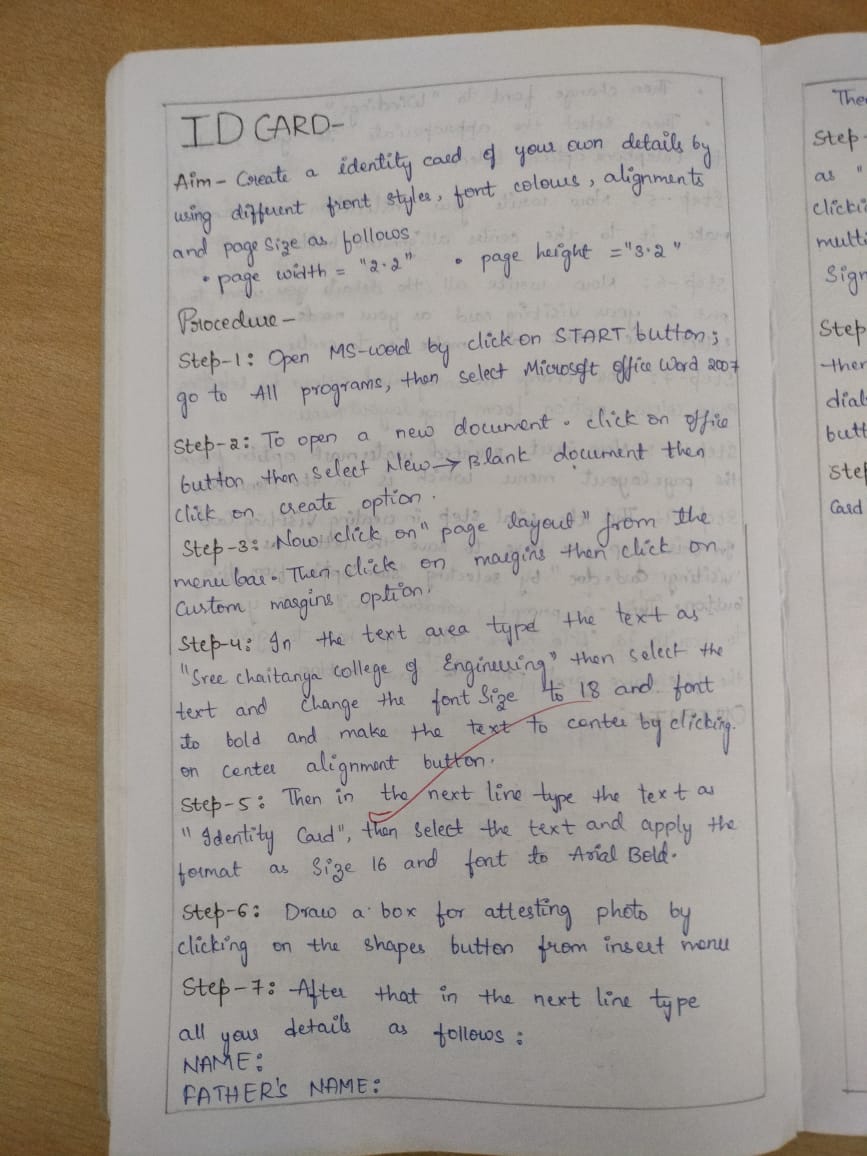 ID CARD-
Aim - Create a identity card of your own details by
using different front styles, font colours, alignments
and page size as follows.
• page width = "2.2" • page height = "3.2"
Procedure -
Step-1: Open MS-word by click on START button;
go to All programs, then select Microsoft office Word 2007
Step-2: To open a new document. click on office
button then select New → Blank document then
click on create option.
Step-3: Now click on "page layout" from the
menu bar. Then click on margins then click on
Custom margins option.
Step-4: In the text area type the text as
"Sree chaitanya college of Engineering" then select the
text and change the font size to 18 and font
to bold and make the text to center by clicking
on center alignment button.
Step-5: Then in the next line type the text as
"Identity Card", then select the text and apply the
format as size 16 and font to Arial Bold.
Step-6: Draw a box for attesting photo by
clicking on the shapes button from insert menu
Step-7: After that in the next line type
all your details as follows:
NAME:
FATHER'S NAME:
Step-
as "
multi
Sign
Step
Step
Card